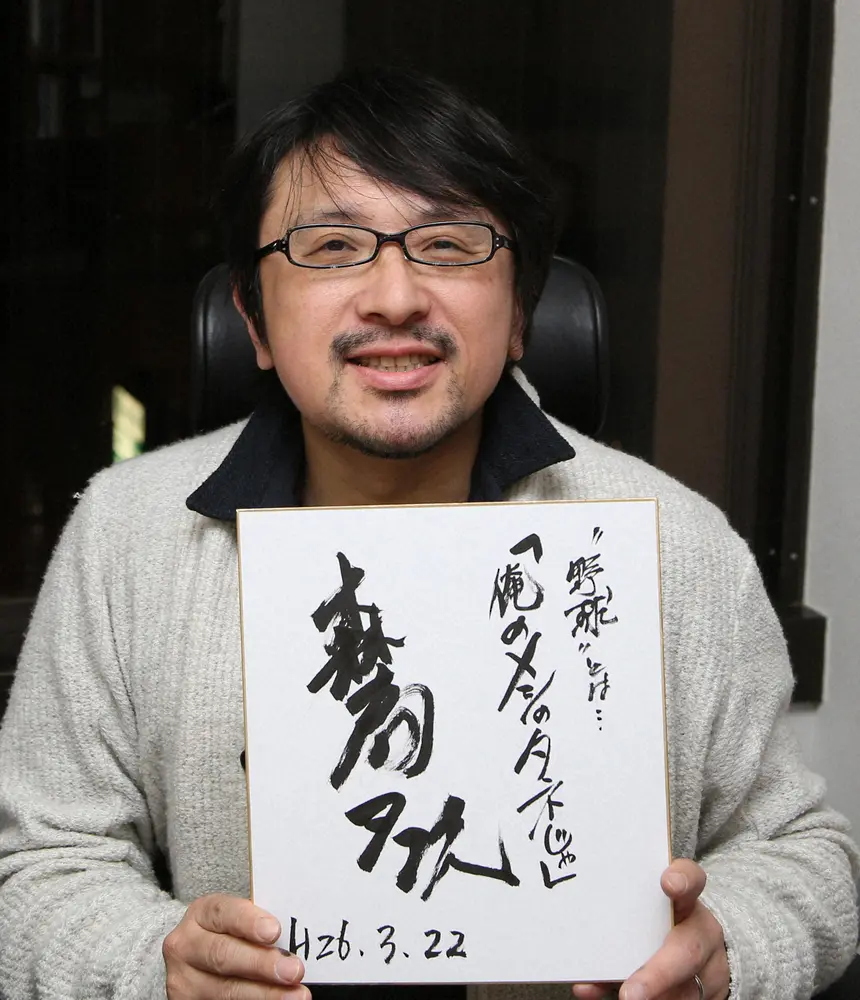 "野球"とは…
「俺のメシのタネじゃ」
森高夕次
H26.3.22